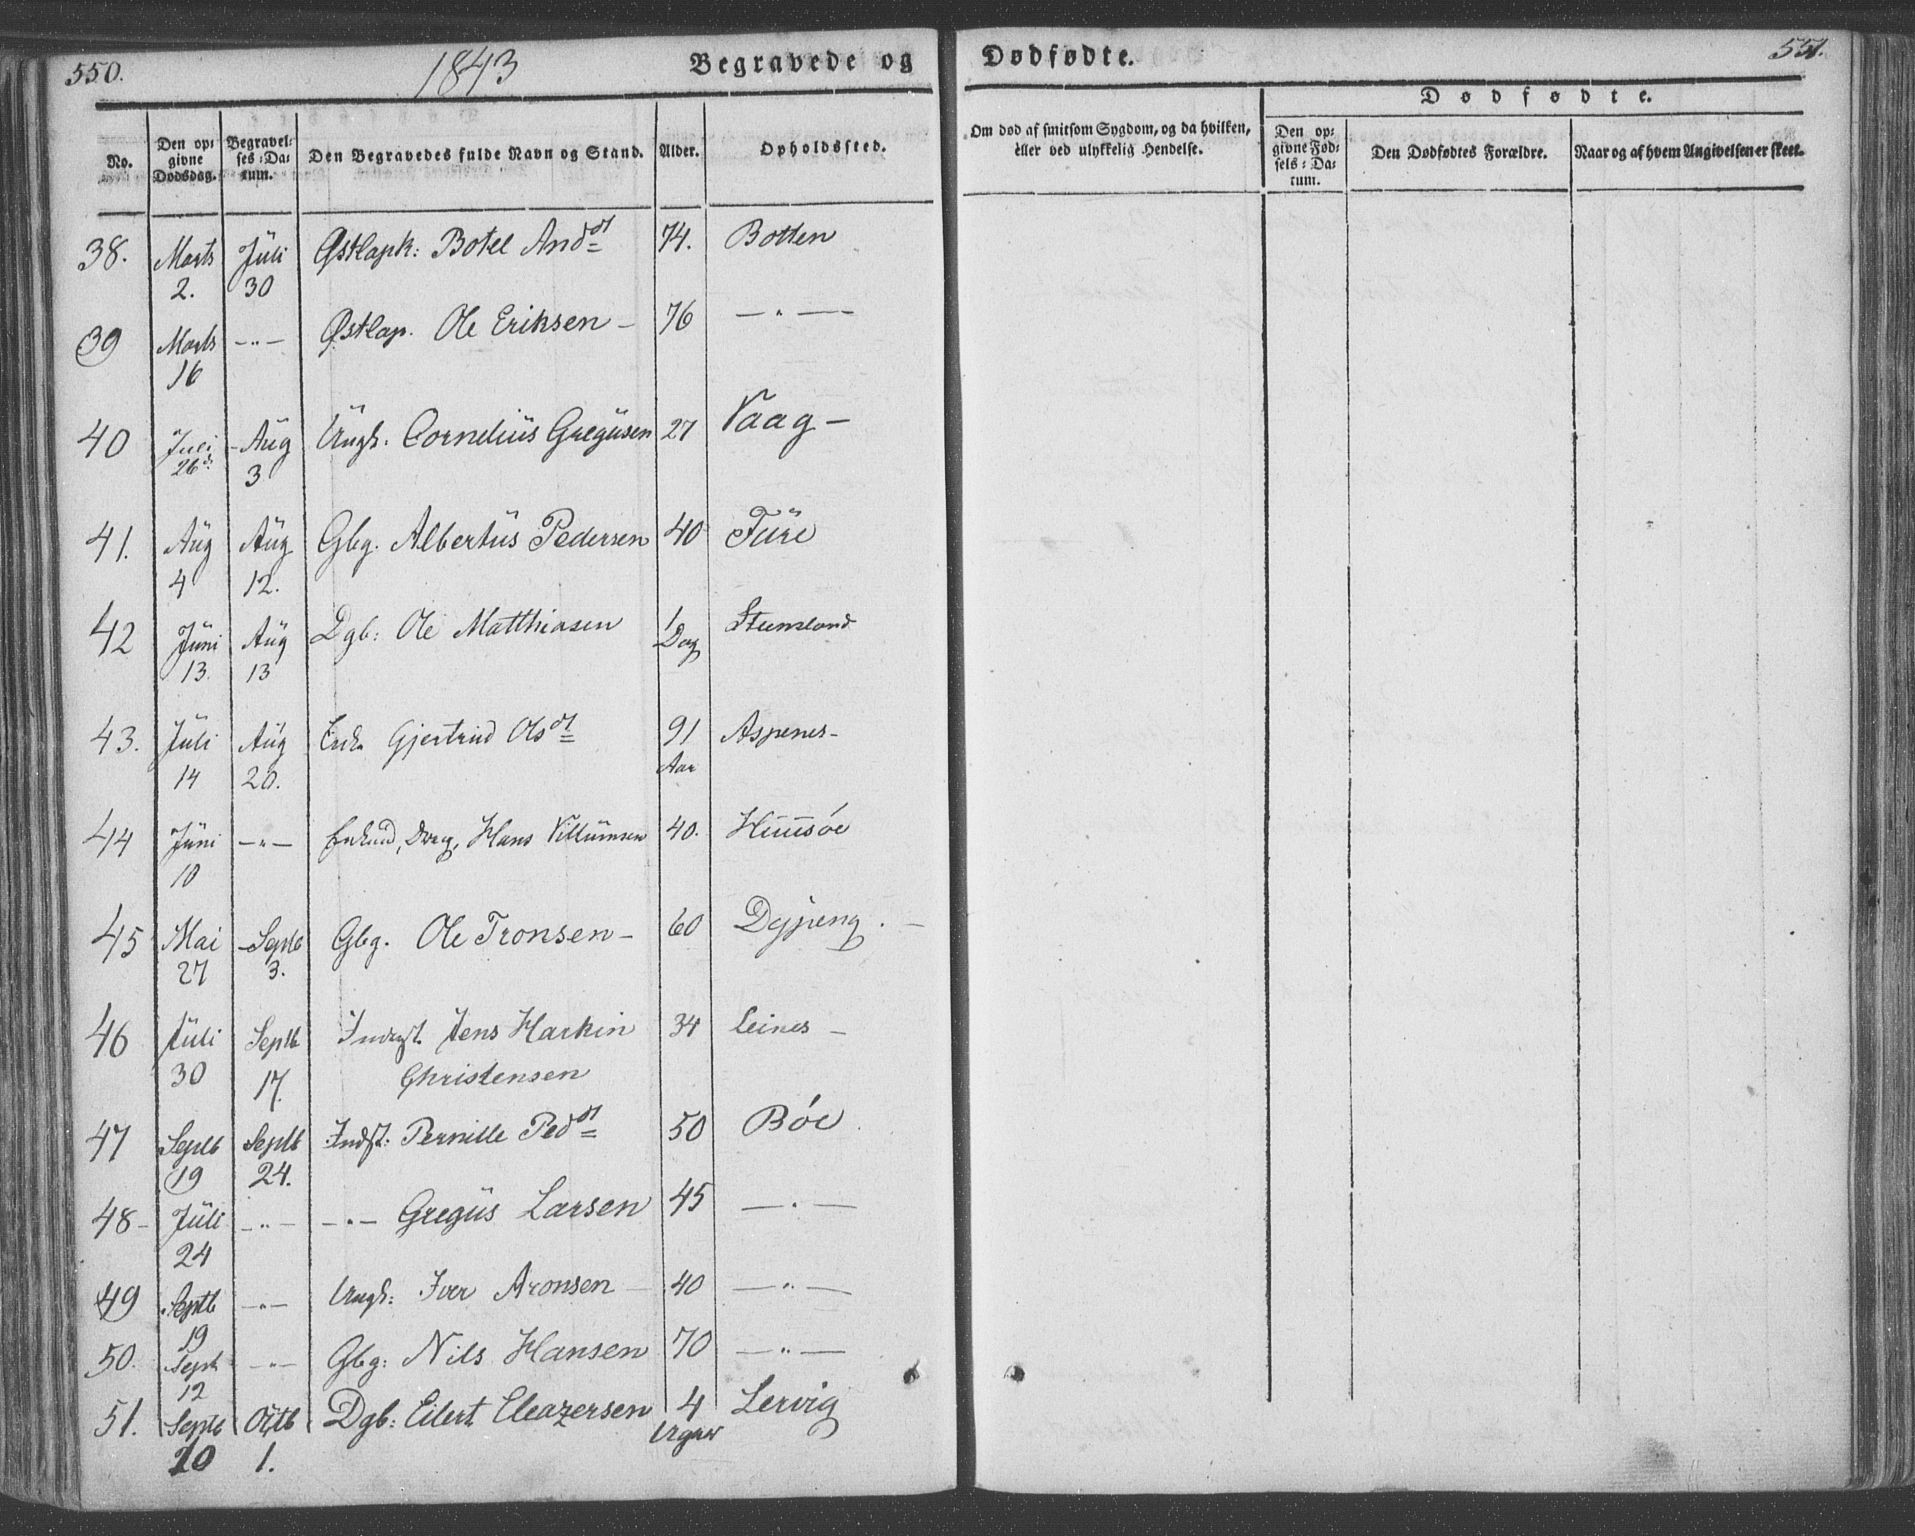 550.
1843
Begravede og
Dødfødte.
551.
No.
Den op-
givne
Dødsdag.
Begravel-
ses-Da-
tum.
Den Begravedes fulde Navn og Stand.
Alder.
Opholdssted.
Om død af smitsom Sygdom, og da hvilken,
eller ved ulykkelig Hendelse.
Dødfødte.
Den op-
givne Fød-
sels-Da-
tum.
Den Dødfødtes Forældre.
Naar og af hvem Angivelsen er skeet.
38. Marts 2. Juli 30 Østlapk: Botel Andd 74. Botten
39 Marts 16 —"— Østlap. Ole Eriksen — 76 —"—
40 Juli 26d Aug 3 Ungk. Cornelius Gregusen 27 Vaag —
41. Aug 4 Aug 12. Gbg. Albertus Pedersen 40 Füre
42 Juni 13. Aug 13 Dgb: Ole Matthiasen 1 Dag
43. Juli 14 Aug 20. Enk. Gjertrud Olsd 91 Aar Aspenes —
44 Juni 10 —"— Hans Villumsen 40. Huusøe
45 Mai 27 Septb 3. Gbg. Ole Tronsen — 60
46 Juli 30 Septb 17. Jens Harkin 34 Leines —
Christensen
47 Septb 19 Septb 24. Indst: Pernille Pedd 50 Bøe
48 — Juli 24 —"— —"— Gregus Larsen 45 —"—
49 Septb 19 —"— Ungk: Iver Aronsen 40 —"—
50. Septb 12 —"— Gbg: Nils Hansen 70 —"—
51. Septb 10 Octb 1. Dgb: Eilert Eleazersen 4 Uger Lervig